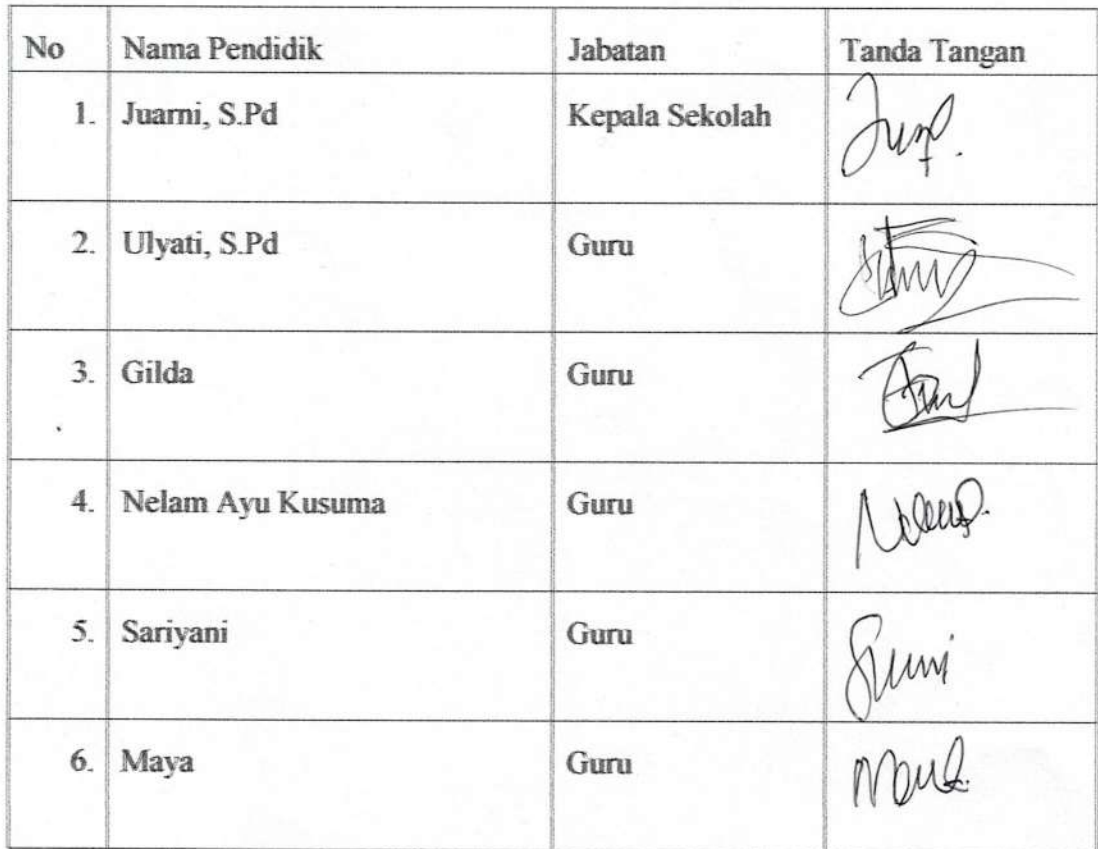 No Nama Pendidik Jabatan Tanda Tangan
1. Juarni, S.Pd Kepala Sekolah
2. Ulyati, S.Pd Guru
3. Gilda Guru
4. Nelam Ayu Kusuma Guru
5. Sariyani Guru
6. Maya Guru